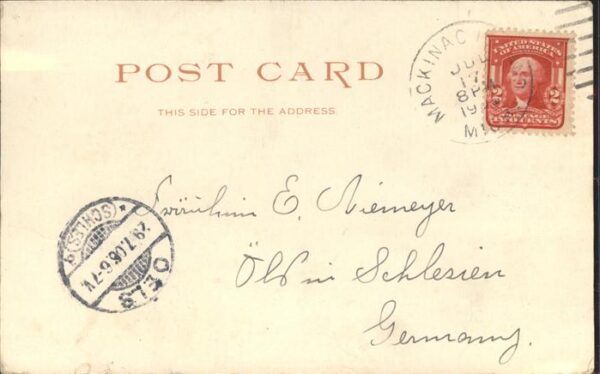 POST CARD
THIS SIDE FOR THE ADDRESS.
MACKINAC
JUL
17
MICH
UNITED STATES
OF AMERICA
2 2
POSTAGE
TWO CENTS
Fräulein E. Niemeyer
Öls in Schlesien
Germany.
* (SCHLES) *
29.7.06.6-7V.
OELS